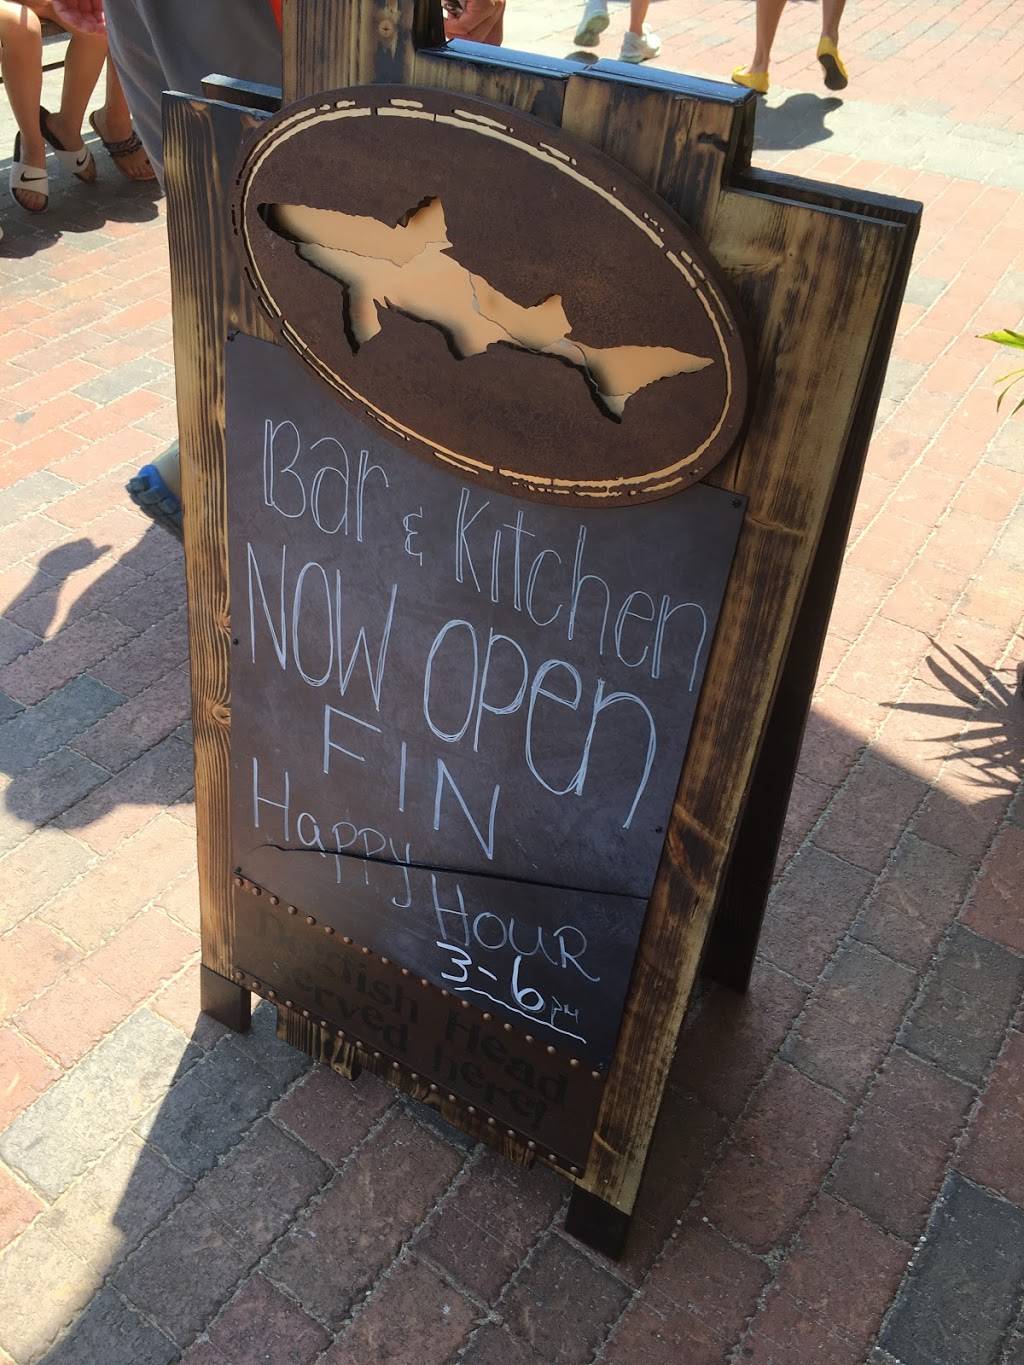 Bar & Kitchen
NOW OPen
FIN
Happy HOUR
3-6 PM
Dogfish Head
served here!